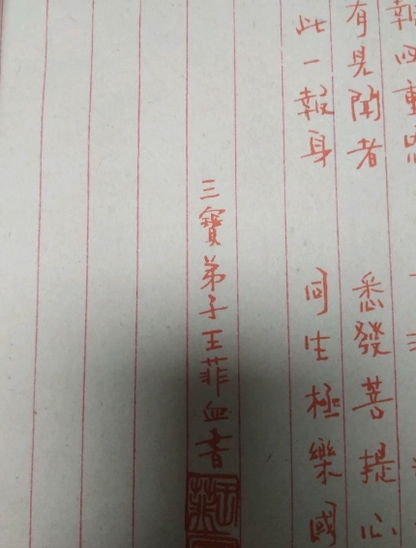 報四重恩
有見聞者 悉發菩提心
此一報身 同生極樂國
三寶弟子王菲血書